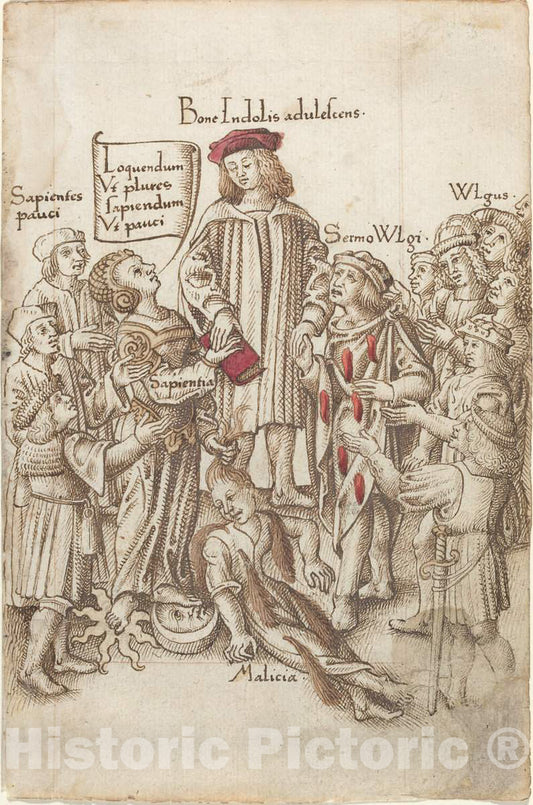 Bone Indolis adulescens.
Loquendum
Vt plures
sapiendum
Vt pauci
Sapientes
pauci
Wlgus.
Sermo Wlgi.
Sapientia
Malicia.
Historic Pictoric ®